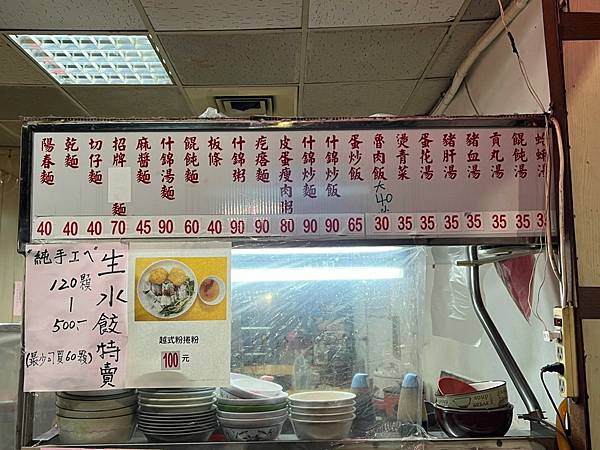 陽春麵
乾麵
切仔麵
招牌 麵
麻醬麵
什錦湯麵
餛飩麵
板條
什錦粥
疙瘩麵
皮蛋瘦肉粥
什錦炒麵
什錦炒飯
蛋炒飯
魯肉飯 大40 小
燙青菜
蛋花湯
豬肝湯
豬血湯
貢丸湯
餛飩湯
40 40 40 70 45 90 60 40 90 90 80 90 90 65 30 35 35 35 35 35 35
"純手工ㄟ"
生水餃特賣
120顆
1
500.-
(最少可買60顆)
越式粉捲粉
100元